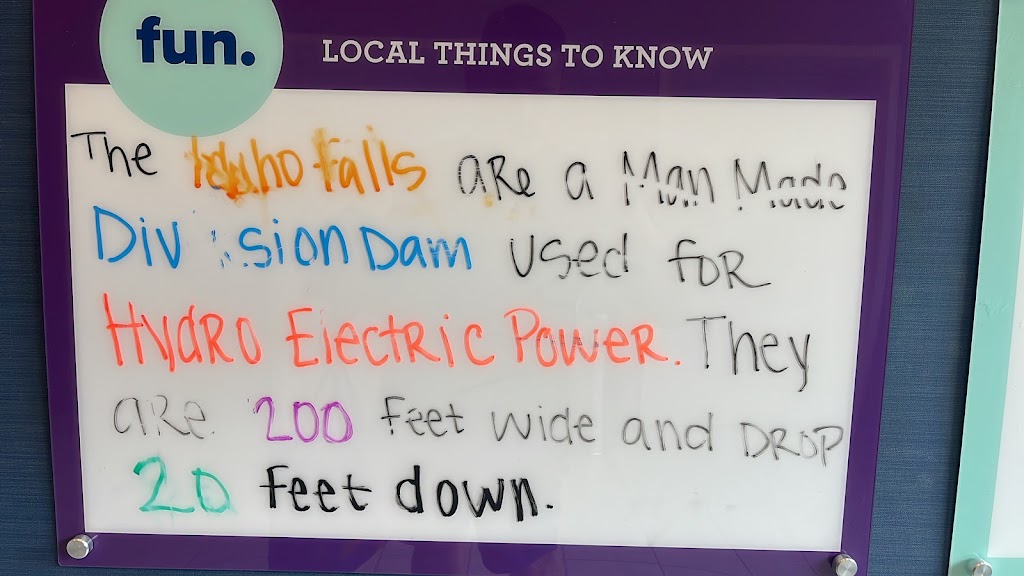 fun.
LOCAL THINGS TO KNOW
The Idaho Falls are a Man Made
Div sion Dam used for
Hydro Electric Power. They
are 200 feet wide and DROP
20 feet down.